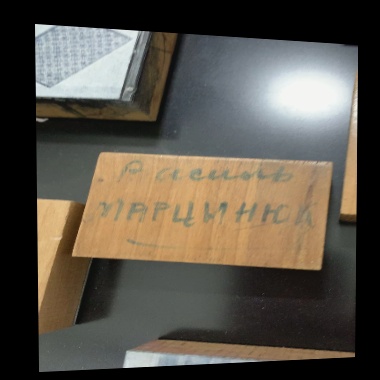 Распль
МАРЦИНЮК